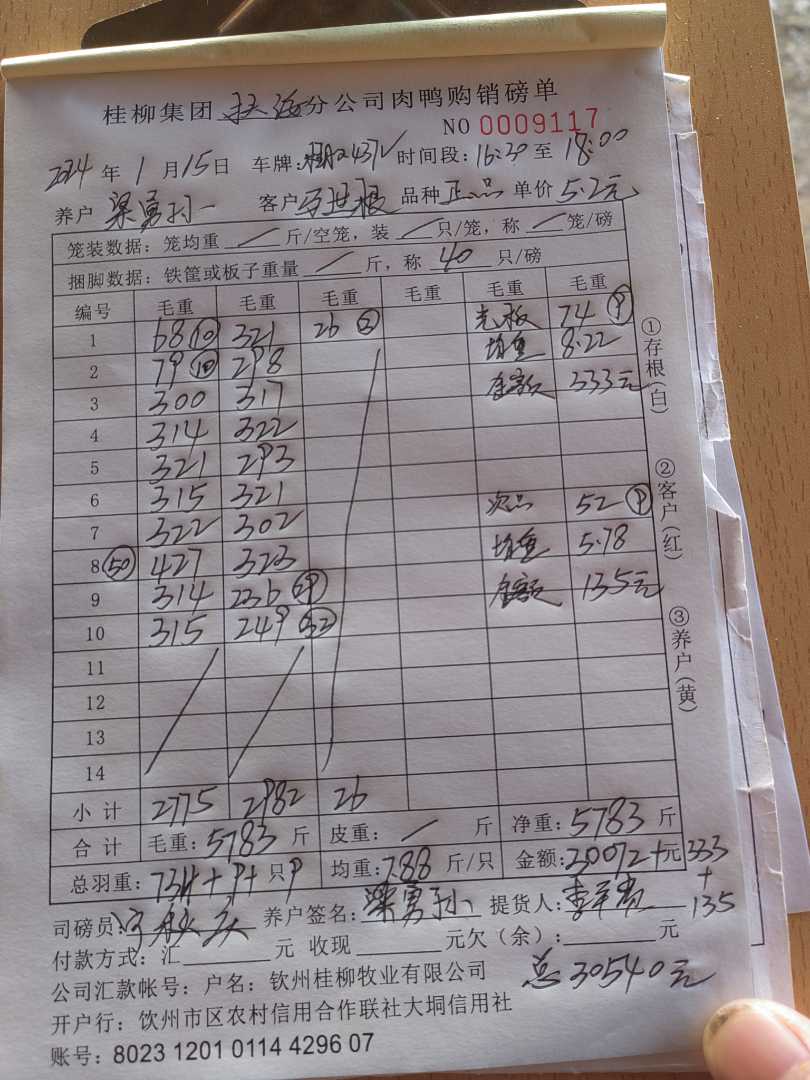 桂柳集团 扶海 分公司肉鸭购销磅单
NO 0009117
2024 年 1 月 15 日 车牌: 时间段: 16:30 至 18:00
养户 梁勇孙一 客户 品种 正品 单价 5.2元
笼装数据: 笼均重 / 斤/空笼, 装 / 只/笼, 称 / 笼/磅
捆脚数据: 铁筐或板子重量 / 斤, 称 40 只/磅
编号 毛重 毛重 毛重 毛重 毛重 毛重
1 68 (10) 321 26 (3) 光板 74 (9)
2 79 (10) 298 均重 8.22
3 300 317 金额 333元
4 314 322
5 321 293
6 315 321 次品 52 (9)
7 322 302 均重 5.78
8 (50) 427 323 金额 135元
9 314 236
10 315 249 (32)
11
12
13
14
小计 2775 2982 26
合计 毛重: 5783 斤 皮重: / 斤 净重: 5783 斤
总羽重: 734+9+ 只 9 均重: 7.88 斤/只 金额: 30072+ 元 333
+
135
司磅员: 养户签名: 梁勇孙 提货人:
付款方式: 汇 元 收现 元欠(余): 元
公司汇款帐号: 户名: 钦州桂柳牧业有限公司
总30540元
开户行: 钦州市区农村信用合作联社大垌信用社
账号: 8023 1201 0114 4296 07
①存根(白)
②客户(红)
③养户(黄)